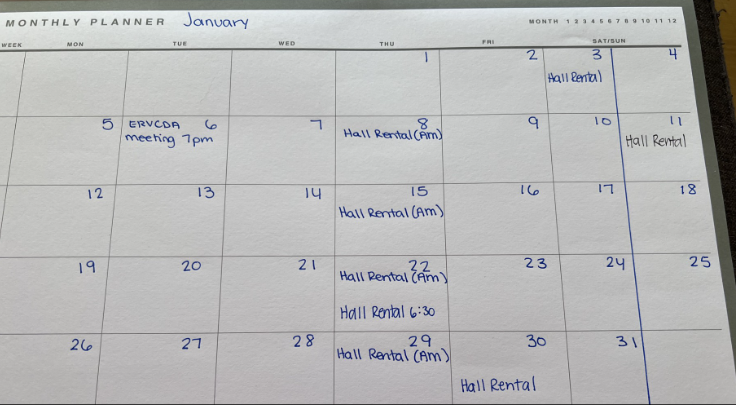 MONTHLY PLANNER January MONTH 1 2 3 4 5 6 7 8 9 10 11 12
WEEK MON TUE WED THU FRI SAT/SUN
1 2 3 4
Hall Rental
5 ERVCDA 6 7 8 9 10 11
meeting 7pm Hall Rental (Am) Hall Rental
12 13 14 15 16 17 18
Hall Rental (Am)
19 20 21 22 23 24 25
Hall Rental (Am)
Hall Rental 6:30
26 27 28 29 30 31
Hall Rental (Am)
Hall Rental